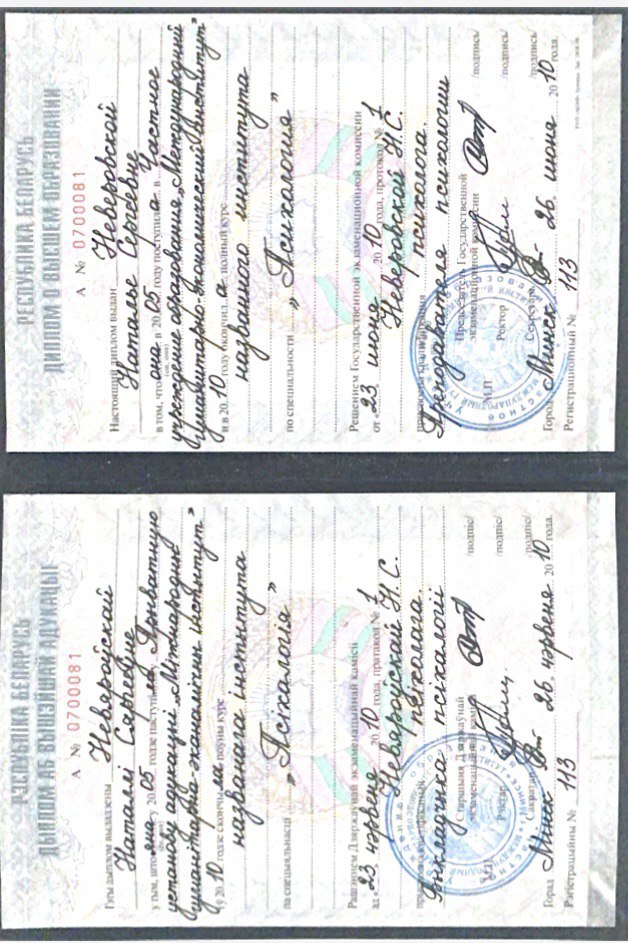 РЭСПУБЛІКА БЕЛАРУСЬ
ДЫПЛОМ АБ ВЫШЭЙШАЙ АДУКАЦЫІ
А № 0700081
Гэты дыплом выдадзены Невяроўскай
Наталлі Сяргеўне
у тым, што яна у 20 05 годзе паступіла ў Прыватную
установу адукацыі „Міжнародны
гуманітарна-эканамічны інстытут”
і ў 20 10 годзе скончыла поўны курс
названага інстытута
па спецыяльнасці „Псіхалогія”
Рашэннем Дзяржаўнай экзаменацыйнай камісіі
ад „23” чэрвеня 20 10 года, пратакол № 1
Невяроўскай Н. С.
псіхолага.
Выкладчыка псіхалогіі
Старшыня Дзяржаўнай
экзаменацыйнай /подпіс/
М.П. Рэктар /подпіс/
Сакратар /подпіс/
Горад Мінск 26 чэрвеня 20 10 года.
Рэгістрацыйны № 113
РЕСПУБЛИКА БЕЛАРУСЬ
ДИПЛОМ О ВЫСШЕМ ОБРАЗОВАНИИ
А № 0700081
Настоящий диплом выдан Неверовской
Наталье Сергеевне
в том, что она в 20 05 году поступила в Частное
учреждение образования „Международный
гуманитарно-экономический институт”
и в 20 10 году окончила полный курс
названного института
по специальности „Психология”
Решением Государственной экзаменационной комиссии
от „23” июня 20 10 года, протокол № 1
Неверовской Н. С.
психолога.
Преподавателя психологии
Председатель Государственной
экзаменационной комиссии /подпись/
М.П. Ректор /подпись/
Секретарь /подпись/
Город Минск 26 июня 20 10 года.
Регистрационный № 113